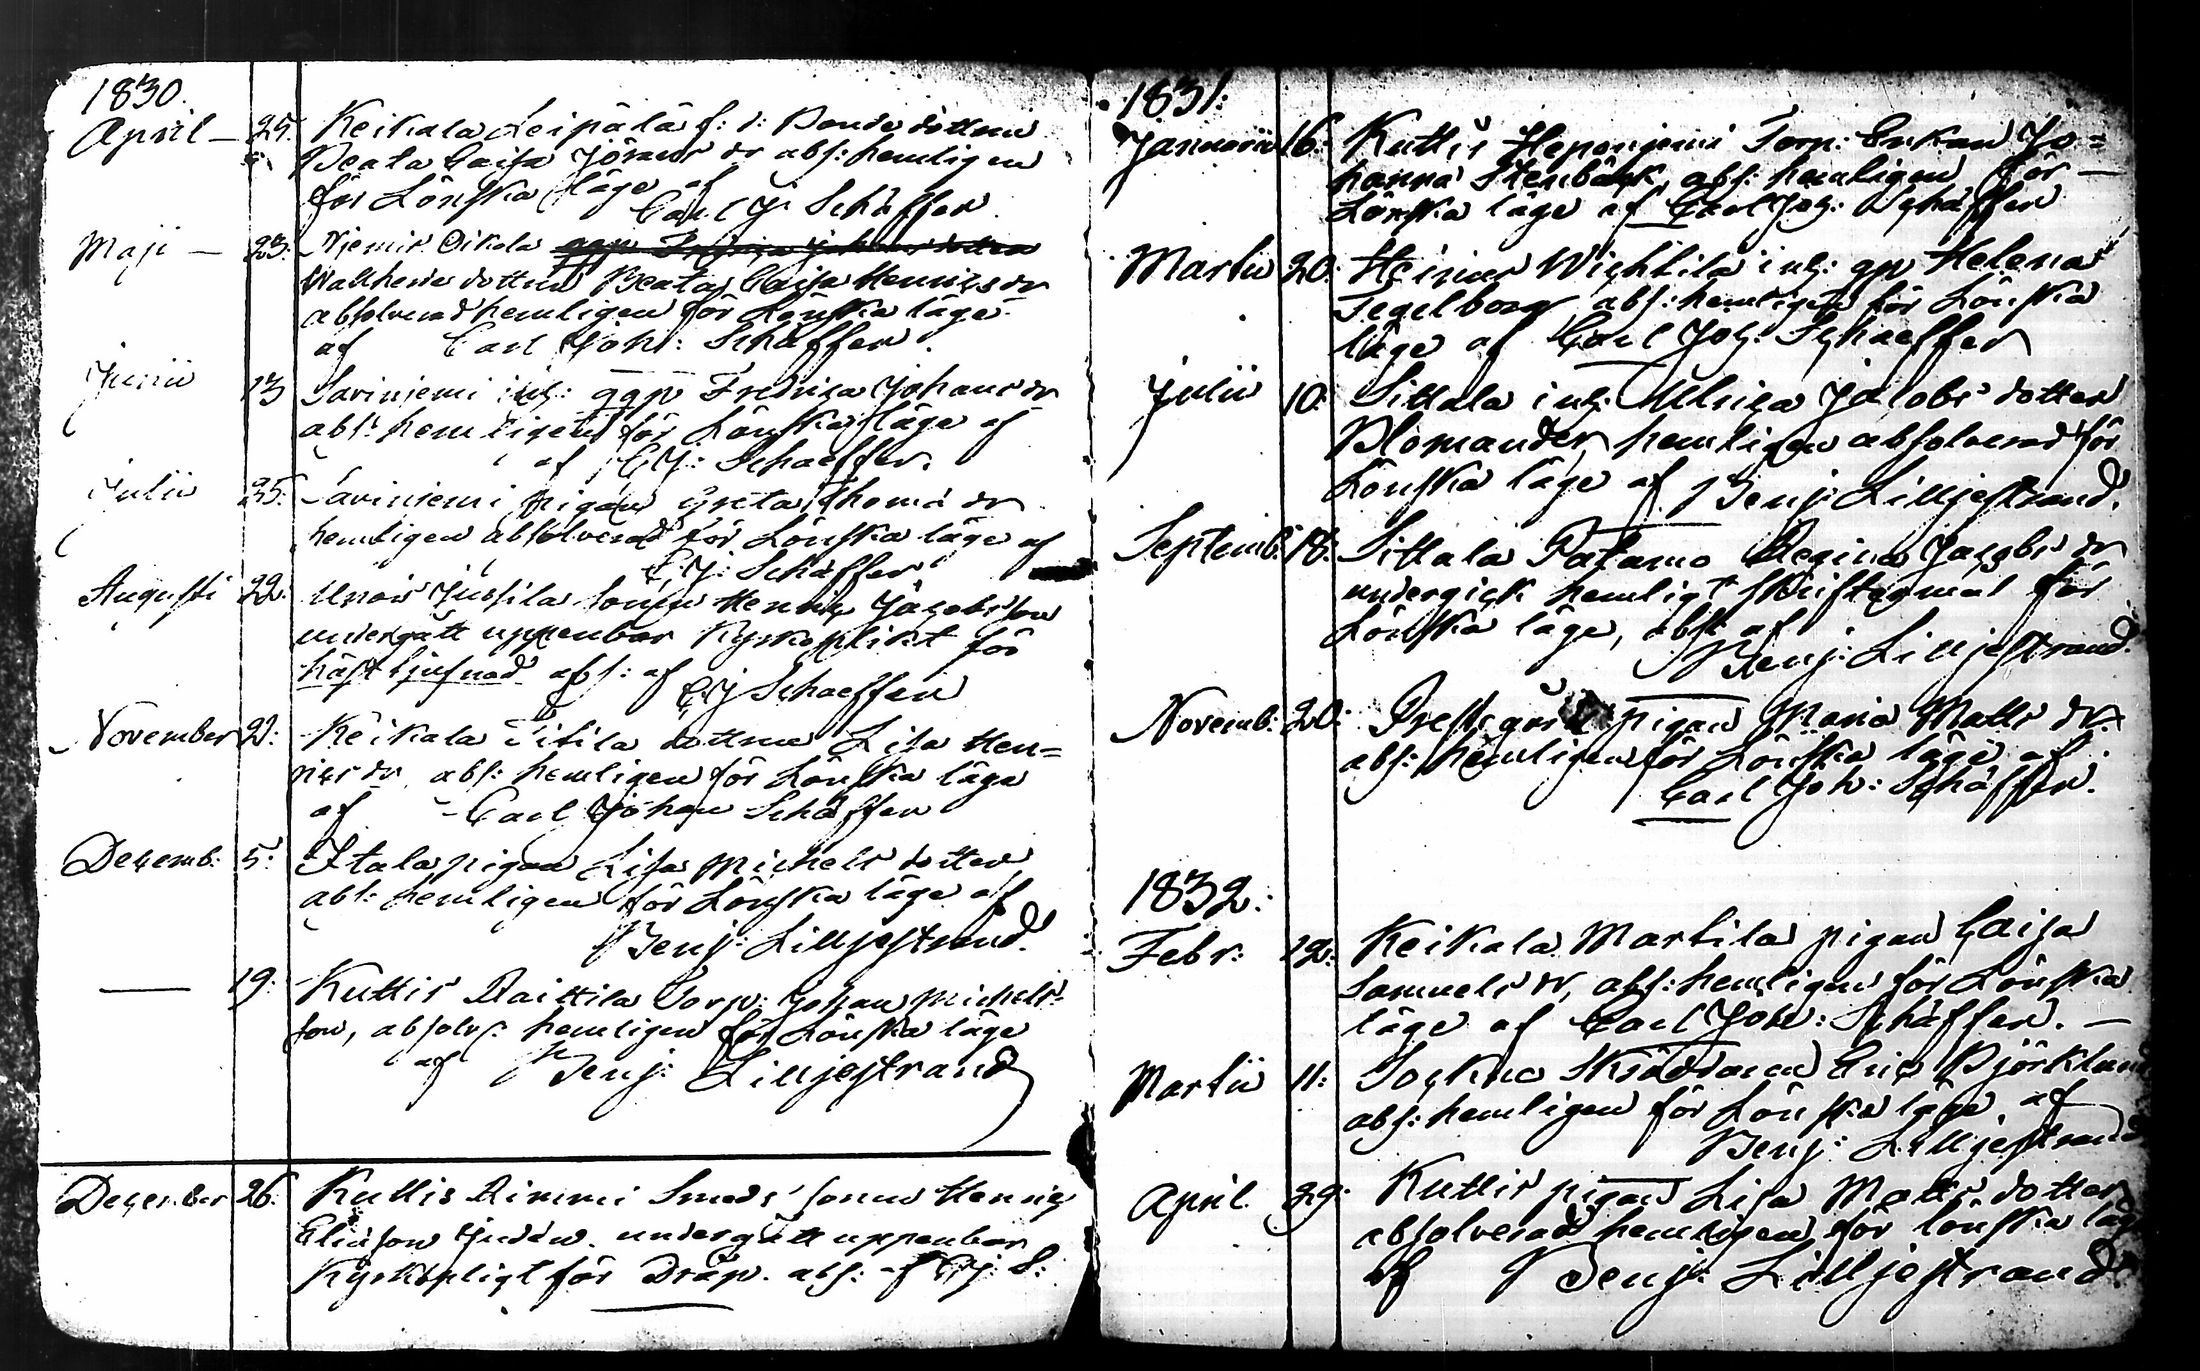 1830.
April — 25. Keikala Leipälä f: d: Bonde dottren
Beata Caisa Jörans dr abs: hemligen
för Lönska läge af
Carl J Schäffer
Maji — 23. Njemis Oikola
dottren Beata Caisa Henrics dr
absolverad hemligen för Lönska läge
af Carl Joh: Schäffer.
Junii 13 Saviniemi inh: qqp Fredrica Johans dr
abs: hemligen för Lönska läge af
af C J: Schaeffer.
Julii 25. Saviniemi pigan Greta Thomæ dr
hemligen absolverad för Lönska läge af
C. J: Schäffer
Augusti 22. Urois Jussila sonen Henric Jacobsson
undergått uppenbar Kyrkoplikt för
häst tjufnad abs: af
C J Schaeffer
November 21: Keikala Titila dottren Lisa Hen=
rics dr abs: hemligen för Lönska läge
af Carl Johan Schäffer
Decemb: 5: Itala pigan Lisa Michels dotter
abs: hemligen för Lönska läge af
Benj: Lilljestrand.
— 19: Kuttis Raittila Torp: Johan Michels=
son, absolv: hemligen för Lönska läge
af Benj: Lilljestrand
December 26. Kuttis Rimmi Smeds sonen Henric
Eliasson undergått uppenbar
Kyrkopligt för Dråp. abs: af C J: S:
1831:
Januarii 16: Kuttis Heponjemi Torp: Enkan Jo=
hanna Stenbäck abs: hemligen för —
Lönska läge af Carl Joh: Schäffer
Martii 20: Heinius Wichtila inh: qp Helena
Tegelborg abs: hemligen för Lönska
läge af Carl Joh: Schaeffer
Julii 10: Sittala inh: Ulrica Jacobs dotter
Blomander, hemligen absolverad för
Lönska läge af Benj: Lilljestrand.
Septemb: 18: Sittala Patamo Regina Jacobs dr
undergick hemligt skriftermål för
Lönska läge, abs: af
Benj: Lilljestrand.
Novemb: 20: Prestgårds pigan Maria Matts dr
abs: hemligen för Lönska läge af
Carl Joh: Schäffer.
1832:
Febr: 12: Keikala Martila pigan Caisa
Samuels dr, abs: hemligen för Lönska
läge af Carl Joh: Schäffer. —
Martii 11: Sockne Skräddaren Eric Björklund
abs: hemligen för Lönska läge af
Benj: Lilljestrand
April 29: Kuttis pigan Lisa Matts dotter
absolverad hemligen för lönska läge
af Benj: Lilljestrand.